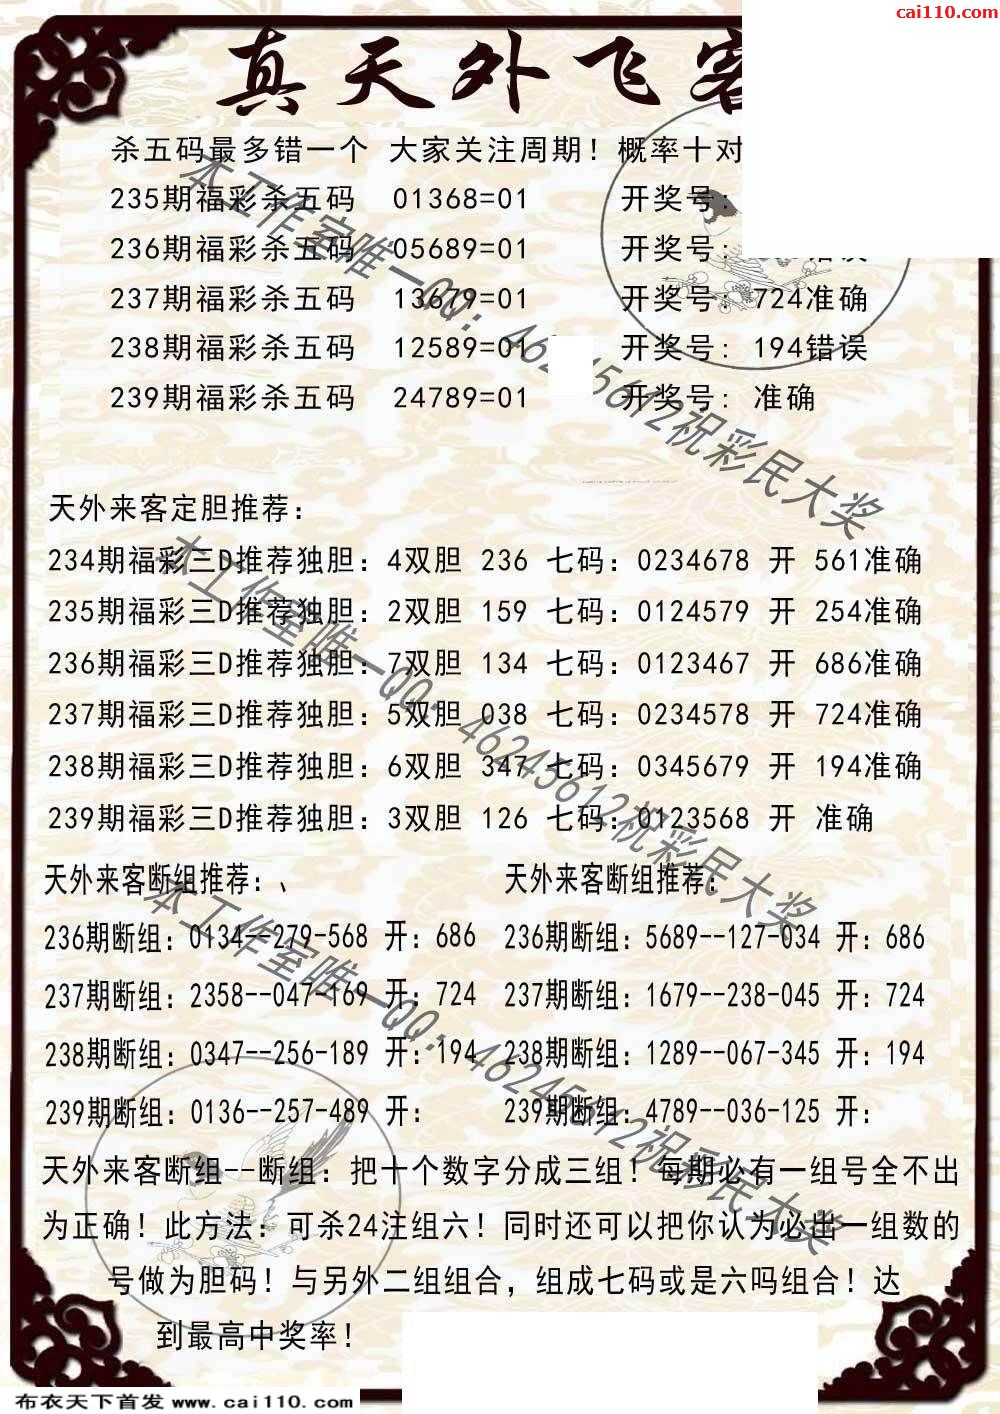 cai110.com
真天外飞客
杀五码最多错一个 大家关注周期！概率十对
235期福彩杀五码 01368=01 开奖号:
236期福彩杀五码 05689=01 开奖号: 错误
237期福彩杀五码 13679=01 开奖号: 724准确
238期福彩杀五码 12589=01 开奖号: 194错误
239期福彩杀五码 24789=01 开奖号: 准确
天外来客定胆推荐:
234期福彩三D推荐独胆: 4双胆 236 七码: 0234678 开 561准确
235期福彩三D推荐独胆: 2双胆 159 七码: 0124579 开 254准确
236期福彩三D推荐独胆: 7双胆 134 七码: 0123467 开 686准确
237期福彩三D推荐独胆: 5双胆 038 七码: 0234578 开 724准确
238期福彩三D推荐独胆: 6双胆 347 七码: 0345679 开 194准确
239期福彩三D推荐独胆: 3双胆 126 七码: 0123568 开 准确
天外来客断组推荐: 、 天外来客断组推荐:
236期断组: 0134--279-568 开: 686 236期断组: 5689--127-034 开: 686
237期断组: 2358--047-169 开: 724 237期断组: 1679--238-045 开: 724
238期断组: 0347--256-189 开: 194 238期断组: 1289--067-345 开: 194
239期断组: 0136--257-489 开: 239期断组: 4789--036-125 开:
天外来客断组--断组: 把十个数字分成三组！每期必有一组号全不出
为正确！此方法: 可杀24注组六！同时还可以把你认为必出一组数的
号做为胆码！与另外二组组合，组成七码或是六吗组合！达
到最高中奖率！
本工作室唯一QQ: 46245612祝彩民大奖
本工作室唯一QQ: 46245612祝彩民大奖
本工作室唯一QQ: 46245612祝彩民大奖
布衣天下首发 www.cai110.com